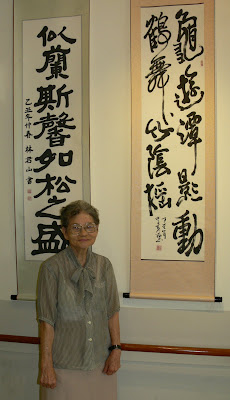 似蘭斯馨如松之盛
乙丑年仲春 林君山書
龜遊潭影動
鶴舞松陰搖